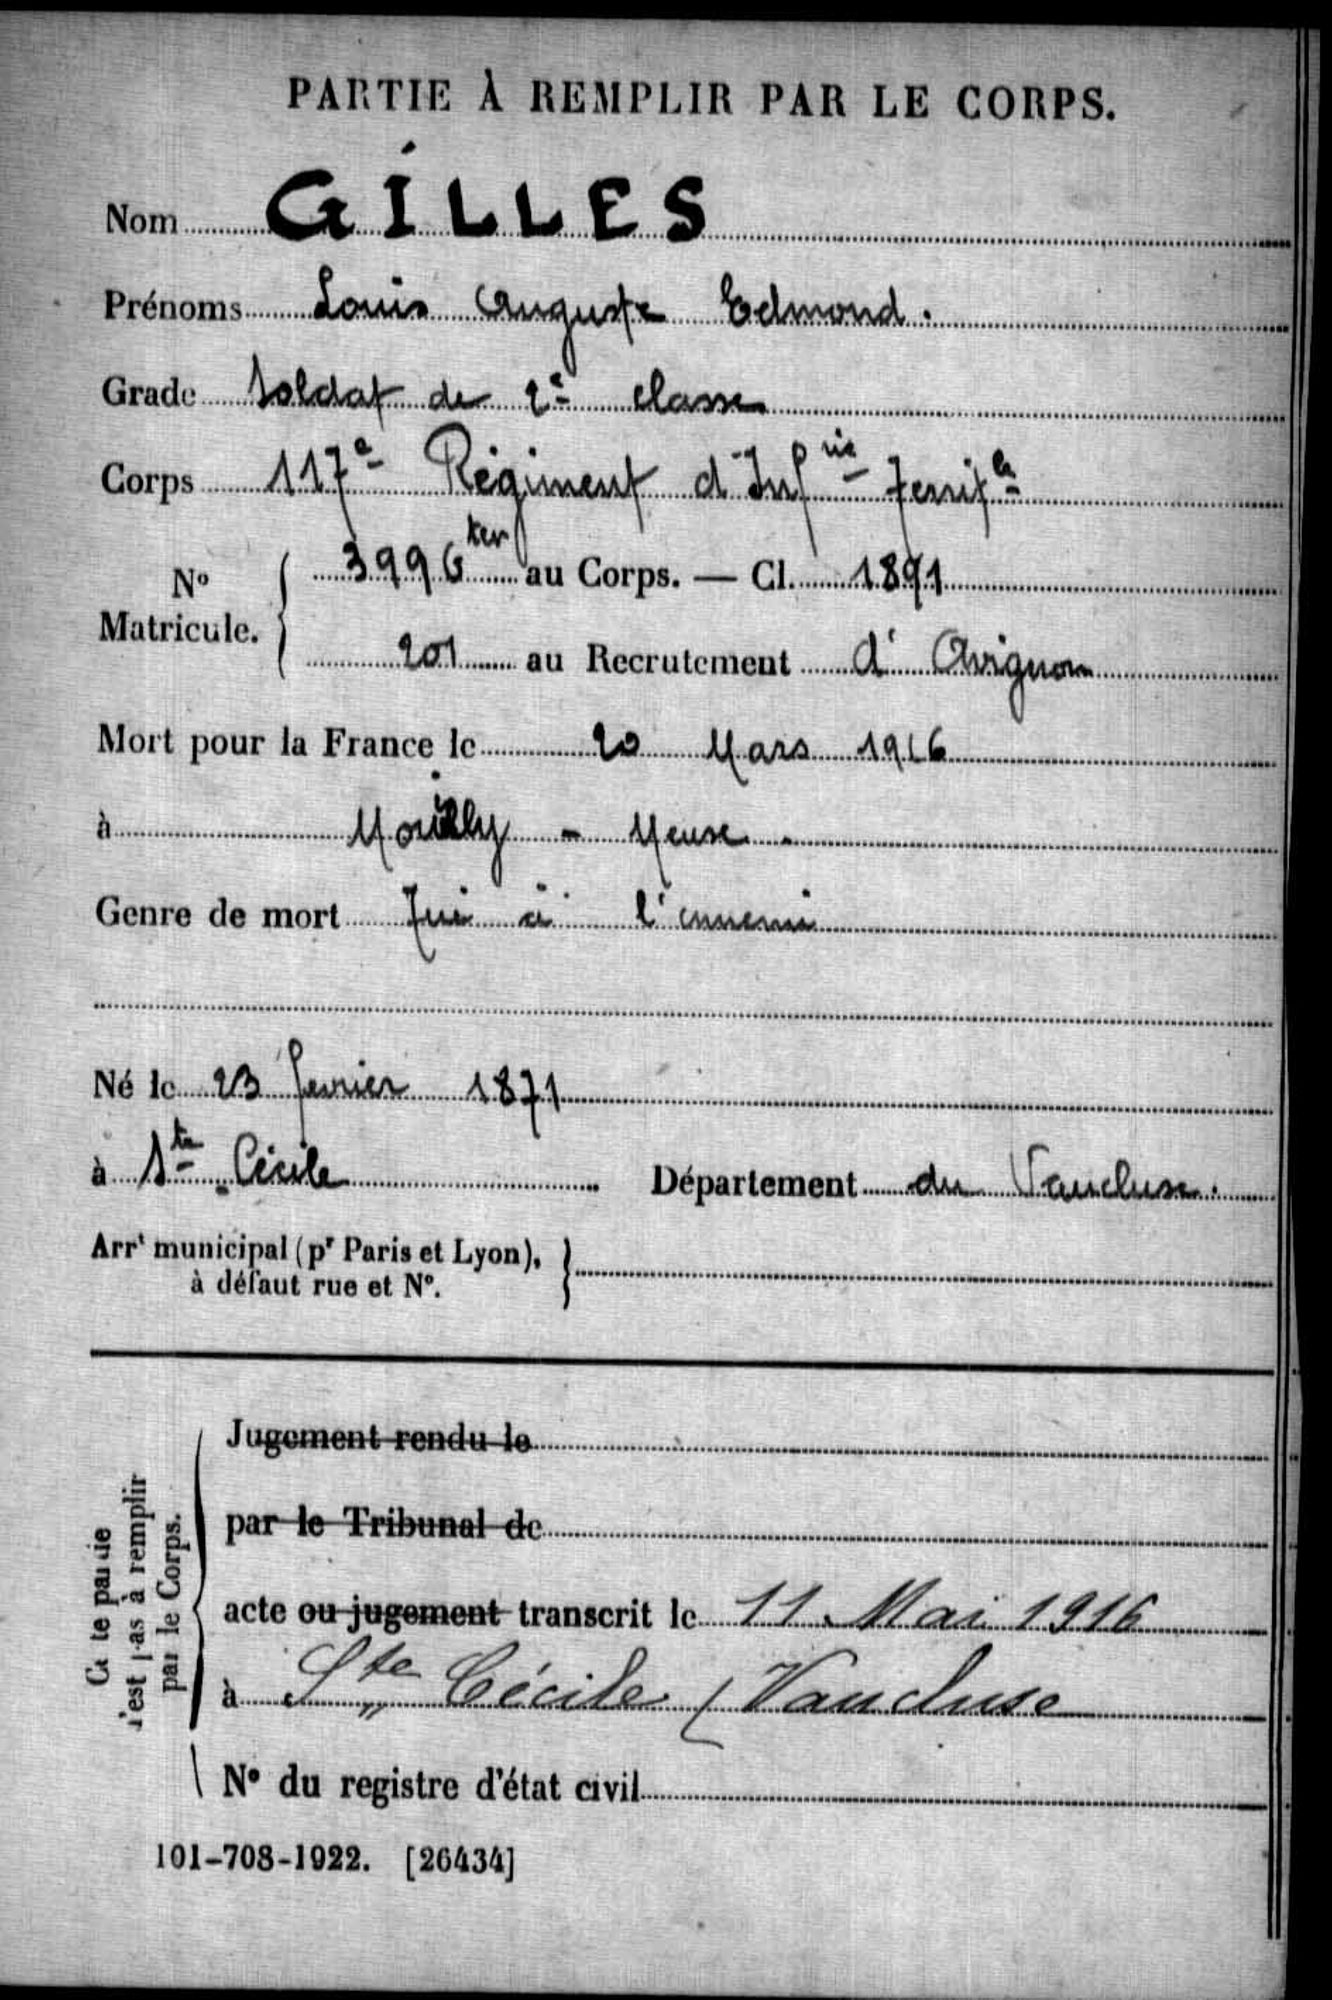 PARTIE À REMPLIR PAR LE CORPS.
Nom GILLES
Prénoms Louis Auguste Edmond.
Grade Soldat de 2e classe
Corps 117e Régiment d'Infrie Territle
No Matricule. { 3996 ter au Corps. — Cl. 1891
201 au Recrutement d'Avignon
Mort pour la France le 20 Mars 1916
à Mouilly - Meuse.
Genre de mort Tué à l'ennemi
Né le 23 février 1871
à Ste-Cécile Département du Vaucluse.
Arrt municipal (pr Paris et Lyon), à défaut rue et No. }
Jugement rendu le
par le Tribunal de
acte ou jugement transcrit le 11 Mai 1916
à Ste Cécile (Vaucluse
No du registre d'état civil
Cette partie n'est pas à remplir par le Corps.
101-708-1922. [26434]